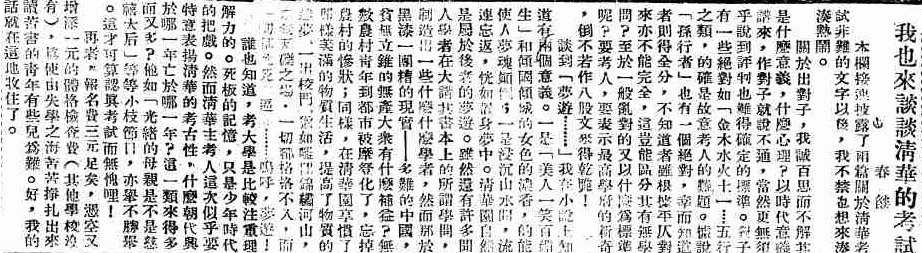 我也來談談清華的考試
春餘
本欄幾披露了兩篇關於清華考
試非難的文字以後，我不禁也想來湊
湊熱鬧。
關於出對子，我誠百思而不解其
是什麼意義，什麼心理？以時代意義
講來，作對子就說不通，當然更無須
乎說到評判也難得確定的標準。對子
有一些絕對如「金木水火土」——五行
之類，的確是故意考人的難題。據說
「孫行者」也有一個絕對，幸而知道
者則得全分，不知道者雖根據平仄對
來亦不能完全，這豈能區分其有無學
問？至於一般亂對的又以什麼為標準
呢？要考人，要表示最高學府的新奇
，倒不若作八股文來得乾脆！
談到「夢遊……」我在小說上知
道有兩個意義。一是「美人一笑百媚
生」和「傾國傾城」的女色的濃香，的能
使人夢魂顛倒；一是浸沉山水間，流
連忘返，恍如落身夢中。清華園自然
是屬於後者的夢遊。雖然還有許多開
是學者在大讀其書本上的所謂學問，
制造出一些什麼學者，然而那於
黑漆一團糟的現實——多難的中國，
貧無立錐的無產大衆有什麼補益？無
數農村青年到都市被摩登化了，忘掉
農村的慘狀；同樣，在清華園享慣了
那樣美滿的物質生活，提高了物質的
迷夢，一出校門，猶如離開錦繡河山，
之場，一切都格格不入，而
一切——嗚呼，夢遊！
誰也知道，考大學是比較注重理
解力的。死板的記憶，只是少年時代
的把戲。然而清華主考人這次似乎要
特意表揚清華的考古性，什麼朝代興
於哪一年亡於哪一年？這一類來得多
而又光？他如「光緒的母親是不是慈
禧太后」等等小枝節，亦舉不勝舉
。這才可算認真考試而無愧哩！
再者，報名費三元足矣，憑空又
增添一元的體格檢查費（其他學校沒
有），將使由失學之海苦苦掙扎出來
讀書的青年有些兒為難。好，我的
話就在這地收住了。